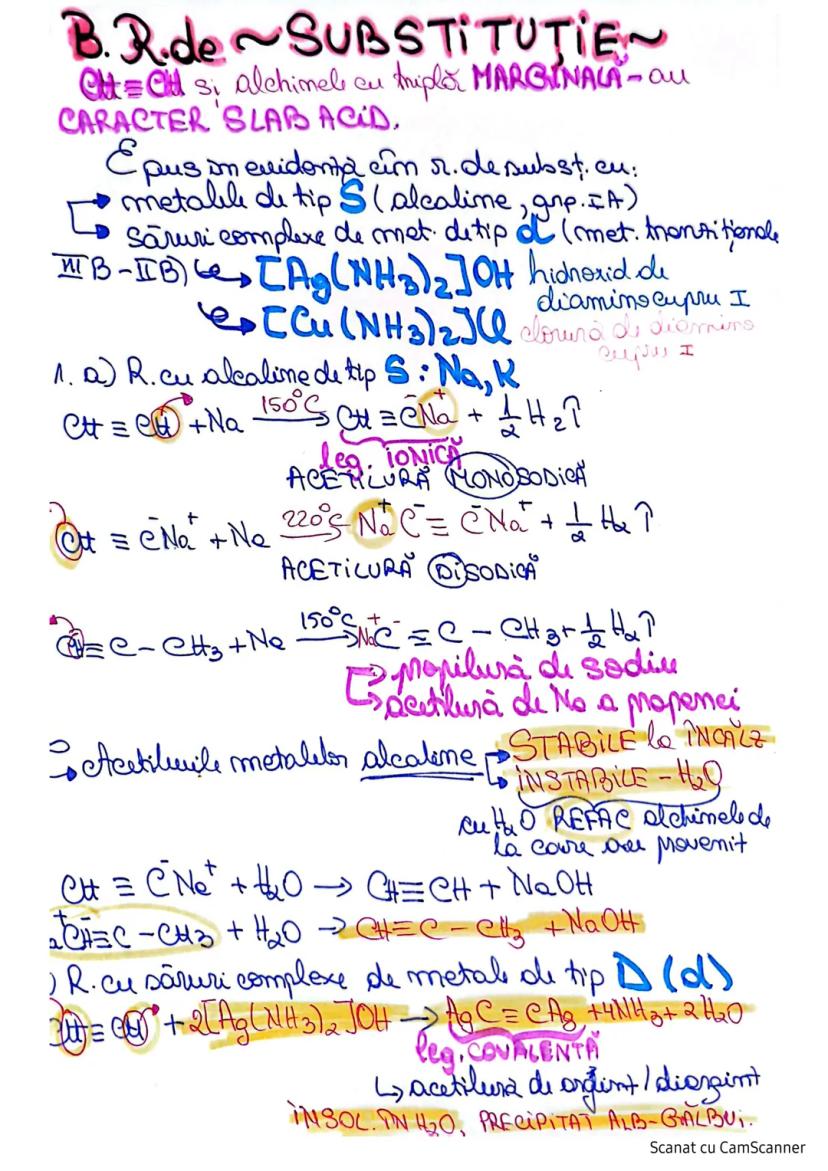 B. R.de ~SUBSTITUȚIE~
CH≡CH și alchinele cu triplă MARGINALĂ - au
CARACTER SLAB ACID.
E pus în evidență cîm r. de subst. cu:
→ metalele de tip S (alcaline, grp. IA)
→ săruri complexe de met. de tip d (met. tranziționale
III B - II B) → [Ag(NH3)2]OH hidroxid de
diaminocupru I
→ [Cu(NH3)2]Cl clorură de diamino
cupru I
1. a) R. cu alcaline de tip S: Na, K
CH ≡ CH + Na 150°C → CH ≡ C⁻Na⁺ + 1/2 H2↑
leg. IONICĂ
ACETILURĂ MONOSODICĂ
CH ≡ C⁻Na⁺ + Na 220°C → Na⁺C⁻ ≡ C⁻Na⁺ + 1/2 H2 ↑
ACETILURĂ DISODICĂ
CH ≡ C - CH3 + Na 150°C → Na⁺C⁻ ≡ C - CH3 + 1/2 H2↑
→ propilură de sodiu
→ acetilură de Na a propenei
→ Acetilurile metalelor alcaline → STABILE la ÎNCĂLZ
→ INSTABILE - H2O
cu H2O REFAC alchinele de
la care au provenit
CH ≡ C⁻Na⁺ + H2O → CH≡CH + NaOH
a⁺C⁻H≡C - CH3 + H2O → CH≡C - CH3 + NaOH
) R. cu săruri complexe de metale de tip D (d)
CH ≡ CH + 2[Ag(NH3)2]OH → AgC ≡ CAg + 4NH3 + 2H2O
leg. COVALENTĂ
↳ acetilură de argint / diargint
INSOL. ÎN H2O, PRECIPITAT ALB-GĂLBUI.
Scanat cu CamScanner